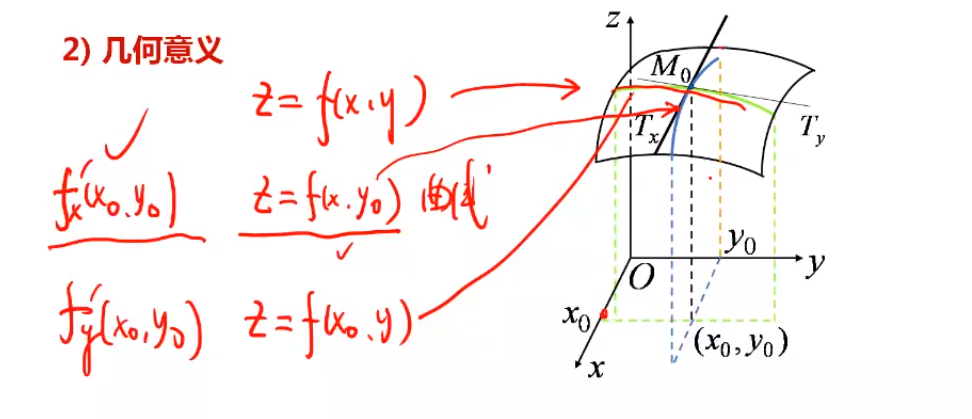 2) 几何意义
z = f(x, y)
f'x(x0, y0) z = f(x, y0) 曲线
f'y(x0, y0) z = f(x0, y)
z
M0
Tx
Ty
y0
O
y
x0
(x0, y0)
x